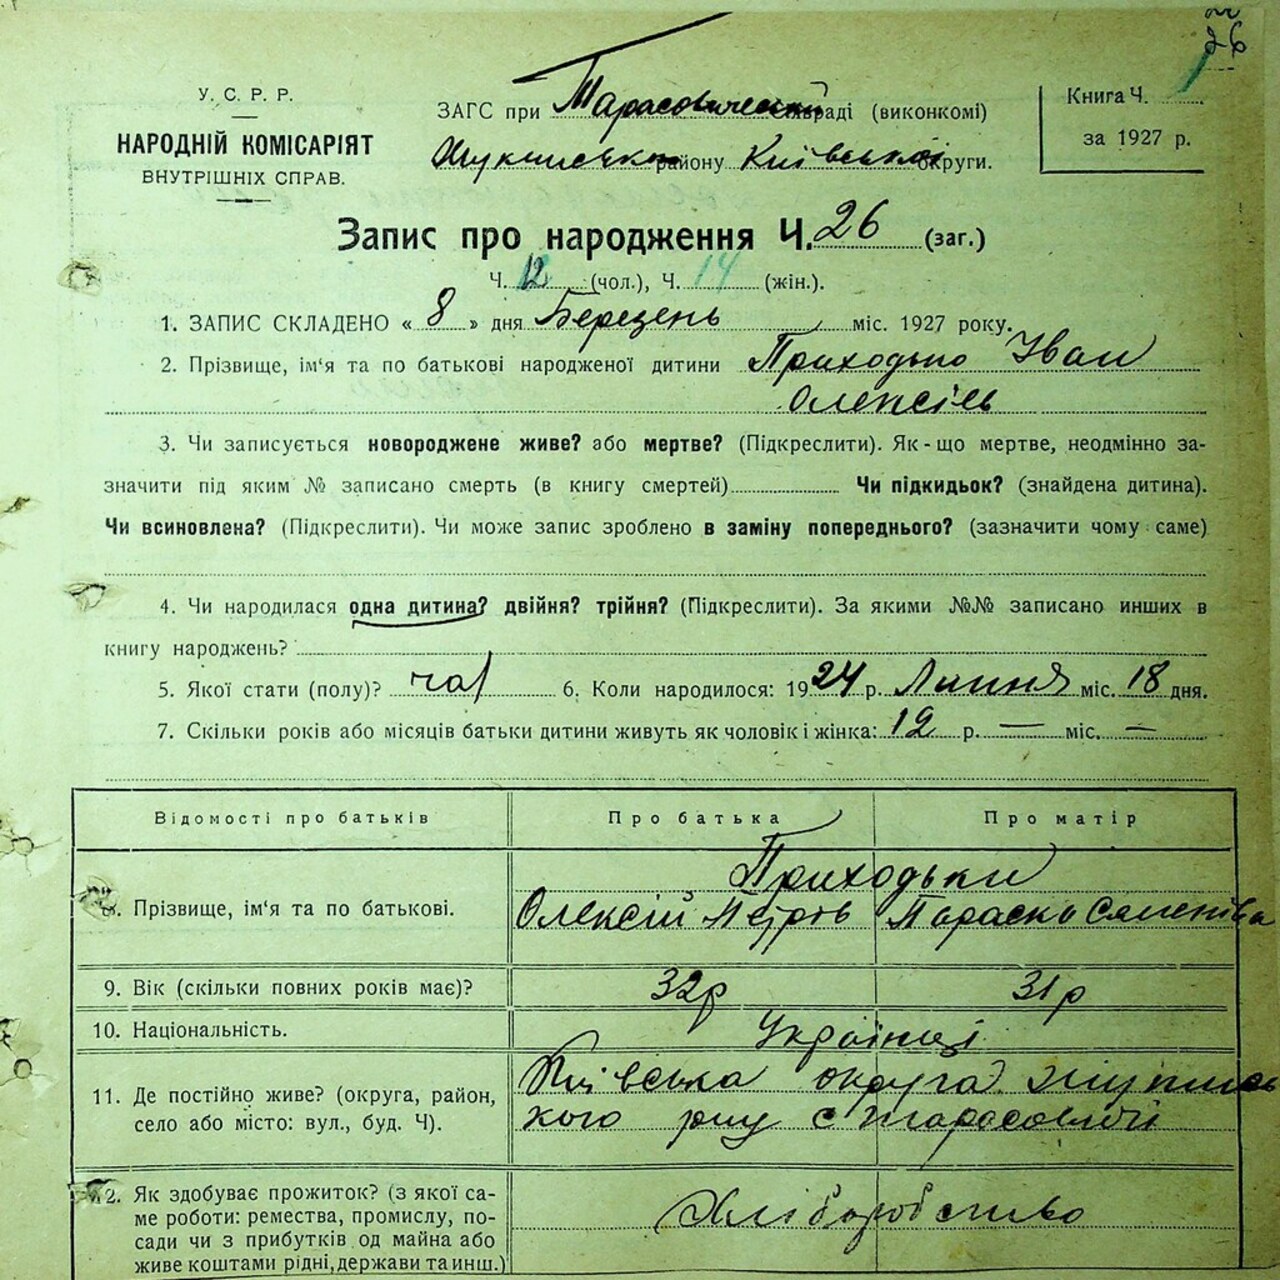 26
У. С. Р. Р.
НАРОДНІЙ КОМІСАРІЯТ
ВНУТРІШНІХ СПРАВ.
ЗАГС при Тарасовическій раді (виконкомі)
району Київської округи.
Книга Ч.
за 1927 р.
Запис про народження Ч. 26 (заг.)
Ч. 12 (чол.), Ч. 14 (жін.).
1. ЗАПИС СКЛАДЕНО « 8 » дня Березень міс. 1927 року.
2. Прізвище, ім'я та по батькові народженої дитини Приходько Іван
Олексієв
3. Чи записується новороджене живе? або мертве? (Підкреслити). Як-що мертве, неодмінно за-
значити під яким № записано смерть (в книгу смертей) Чи підкидьок? (знайдена дитина).
Чи всиновлена? (Підкреслити). Чи може запис зроблено в заміну попереднього? (зазначити чому саме)
4. Чи народилася одна дитина? двійня? трійня? (Підкреслити). За якими №№ записано инших в
книгу народжень?
5. Якої стати (полу)? чол 6. Коли народилося: 1924 р. Липня міс. 18 дня.
7. Скільки років або місяців батьки дитини живуть як чоловік і жінка: 12 р. — міс. —
Відомості про батьків Про батька Про матір
Приходьки
8. Прізвище, ім'я та по батькові. Олексій Петров Параска Семенівна
9. Вік (скільки повних років має)? 32р 31р
10. Національність. Українці
11. Де постійно живе? (округа, район, Київська округа
село або місто: вул., буд. Ч). кого р-ну с Тарасовичі
12. Як здобуває прожиток? (з якої са-
ме роботи: ремества, промислу, по- Хліборобство
сади чи з прибутків од майна або
живе коштами рідні, держави та инш.)